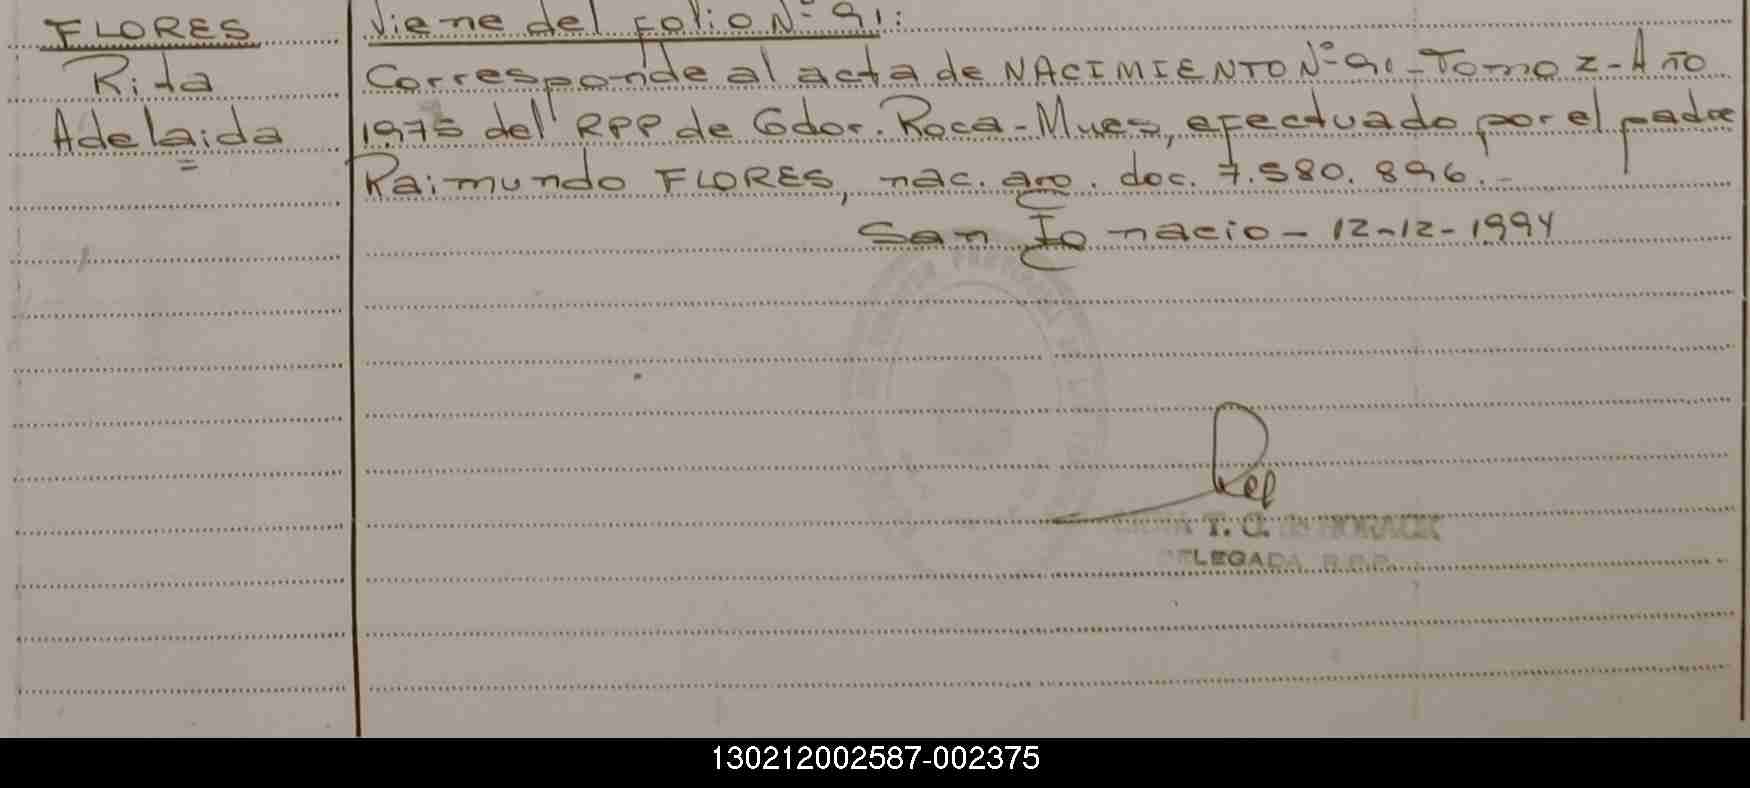 FLORES
Rita
Adelaida
=
Viene del Folio Nº 91:
Corresponde al acta de NACIMIENTO Nº 91 - Tomo 2 - Año
1975 del RPP de Gdor. Roca - Mnes, efectuado por el padre
Raimundo FLORES, nac. arg. doc. 7.580.896.-
San Ignacio - 12-12-1994
T. C. HORACK
DELEGADA R.P.P.
130212002587-002375